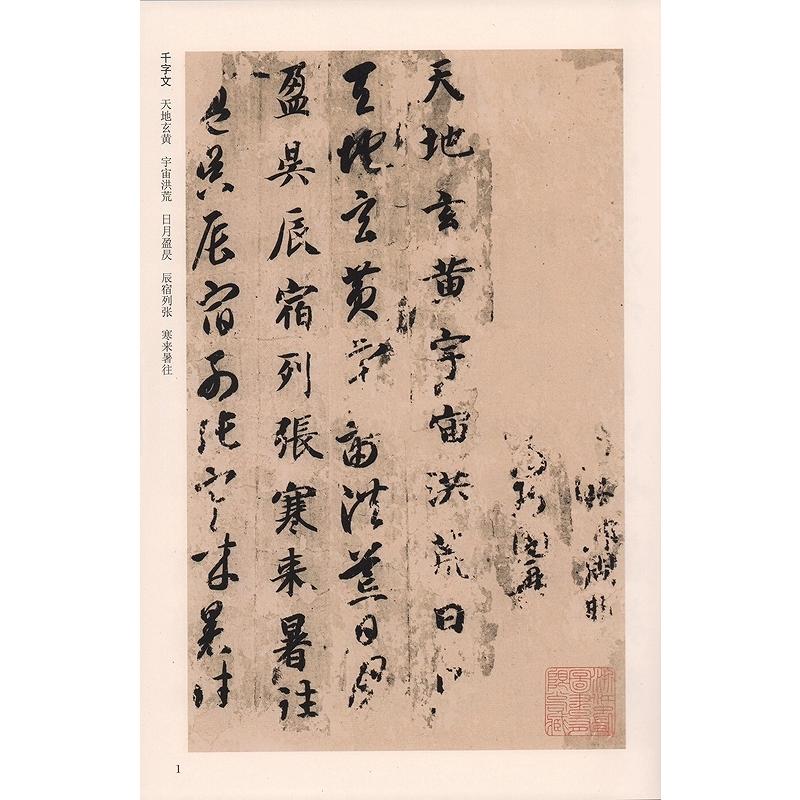 天地玄黄宇宙洪荒日月
天地玄黄宇宙洪荒日月
盈昃辰宿列張寒来暑往
盈昃辰宿列張寒来暑往
千字文 天地玄黄 宇宙洪荒 日月盈昃 辰宿列张 寒来暑往
1